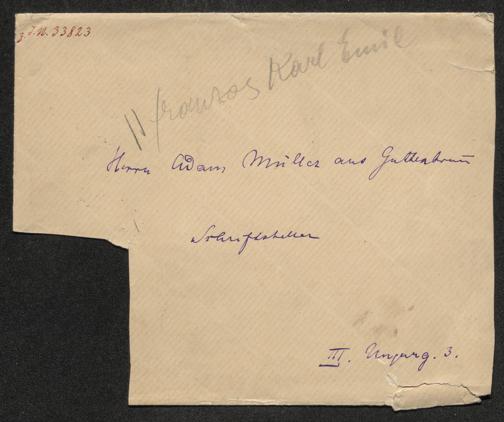 z. J. N. 33823
franzos Karl Emil
Herrn Adam Müller aus Guttenbrunn
Schriftsteller
III. Ungarg. 3.